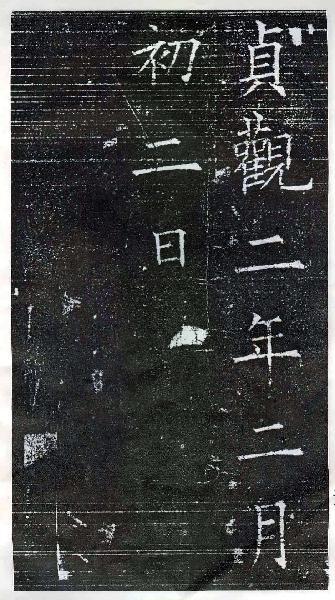 貞觀二年二月
初二日